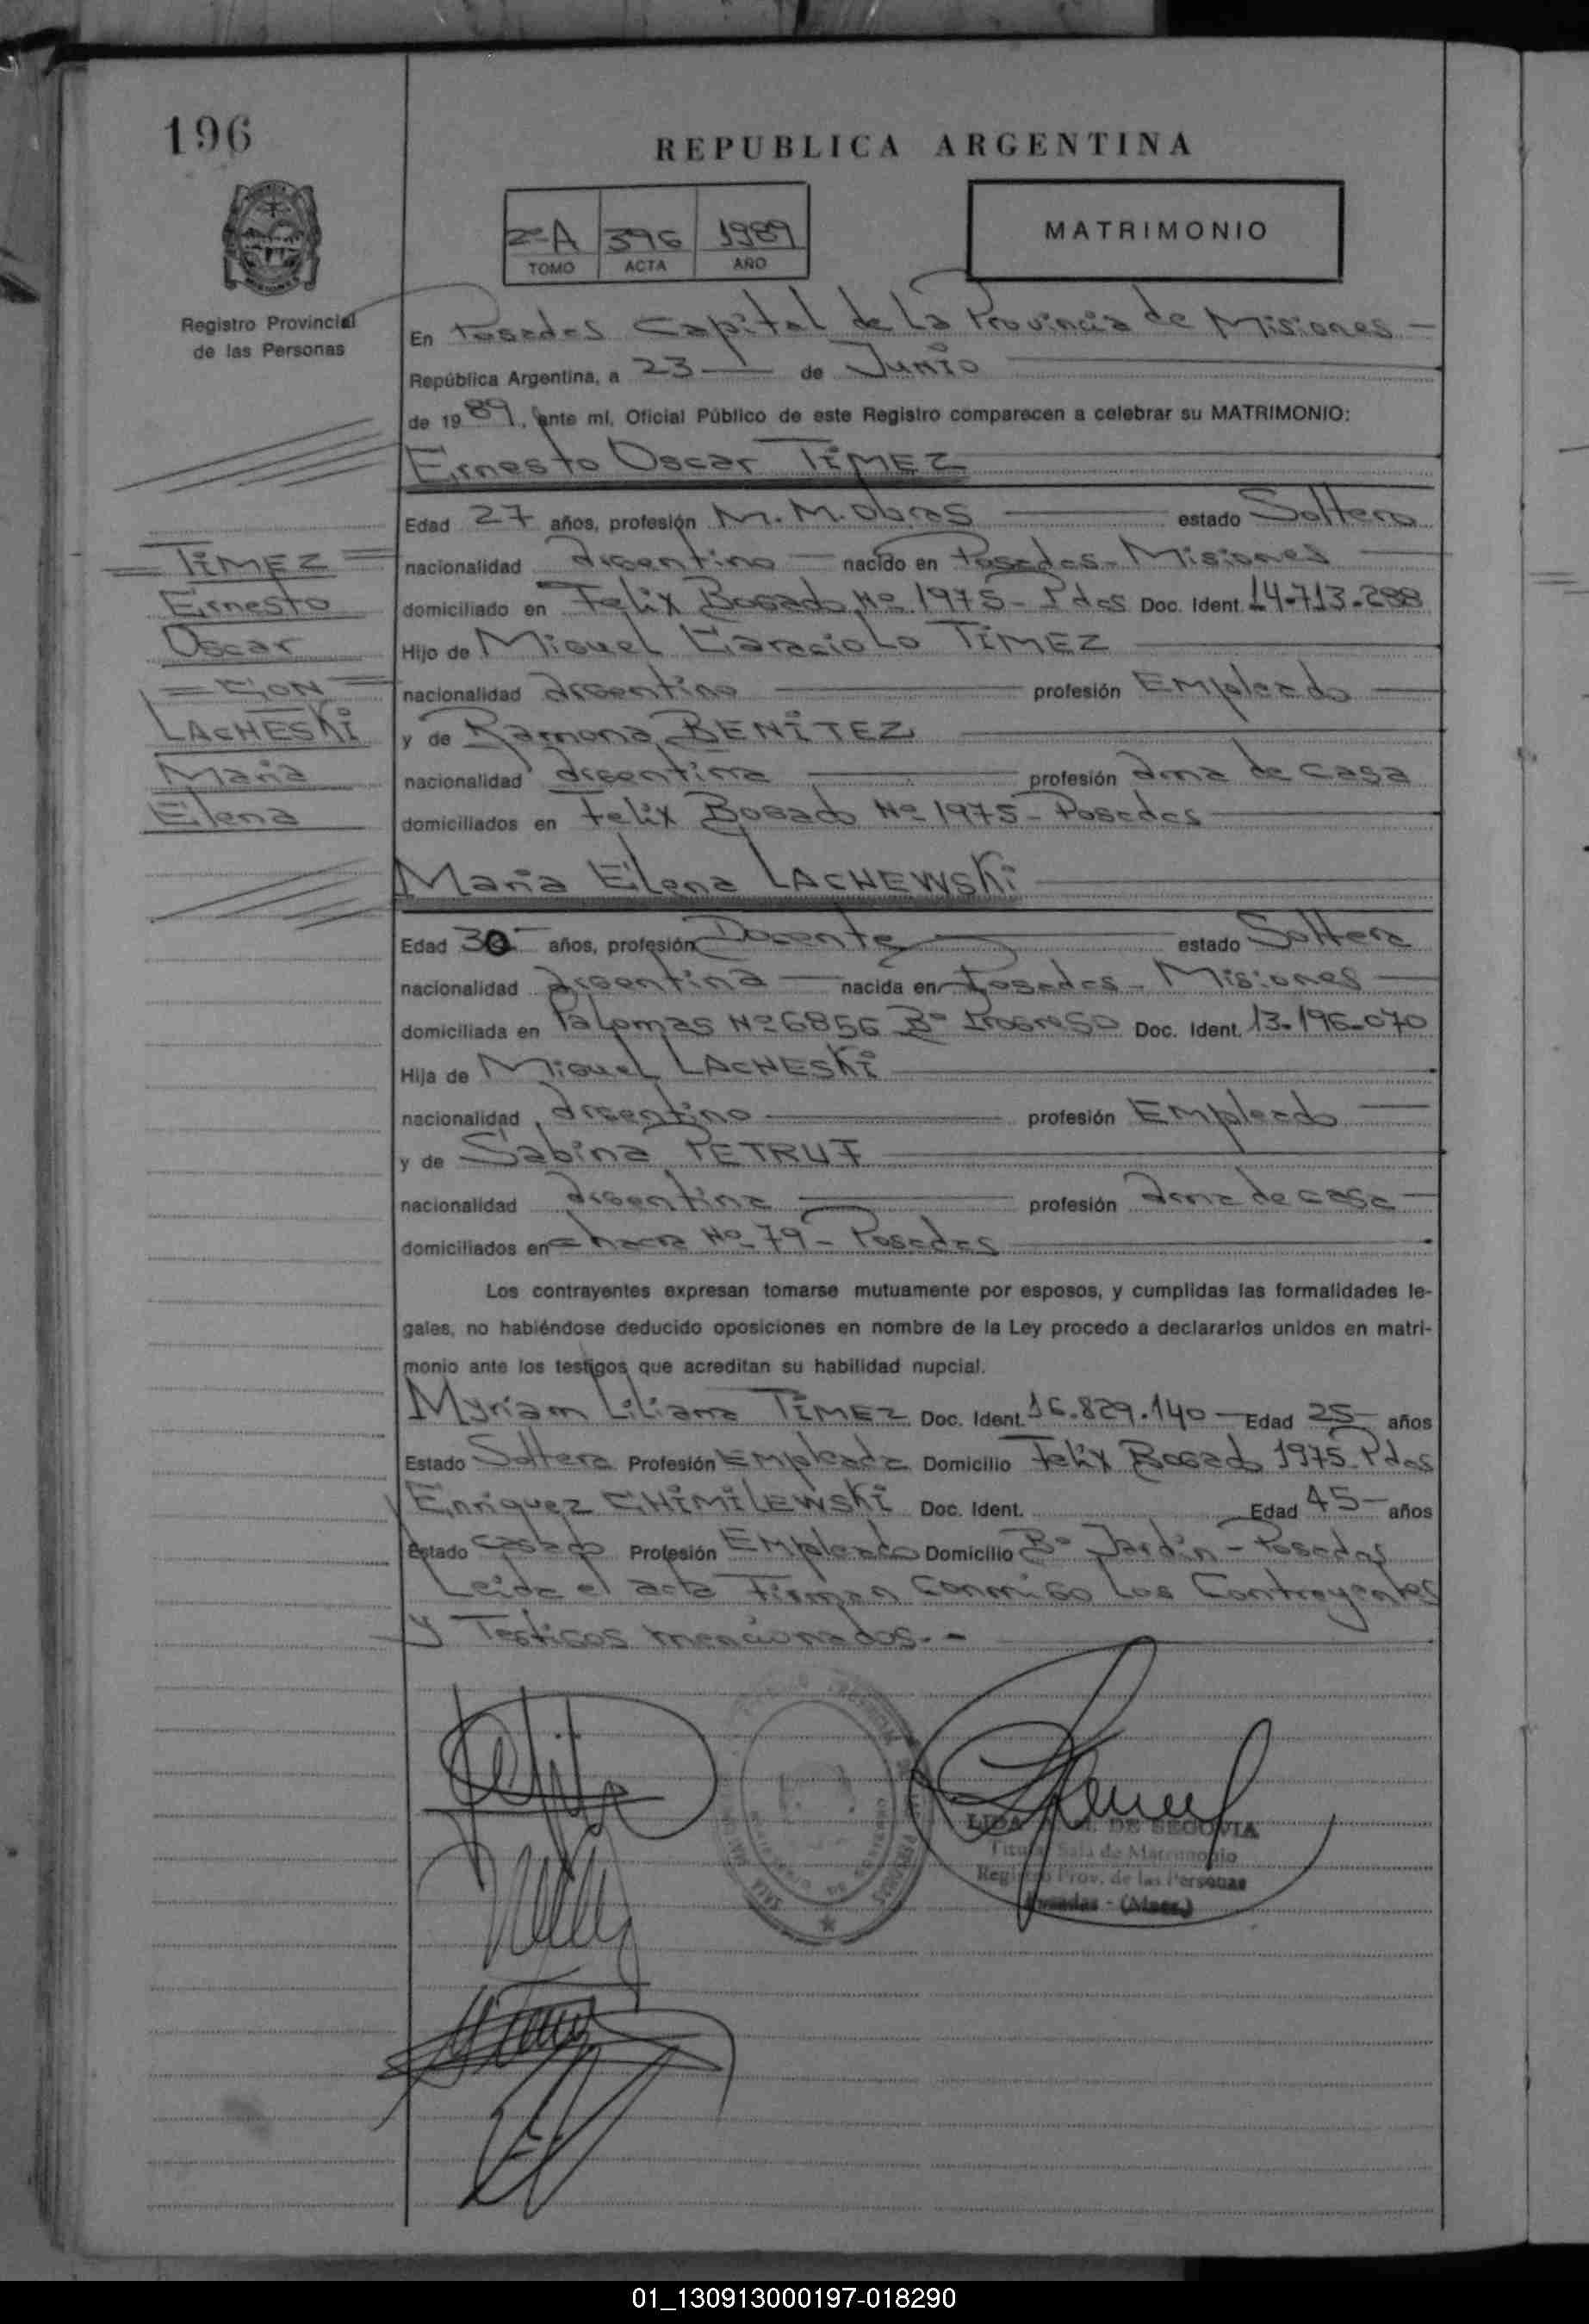 196
REPUBLICA ARGENTINA
2º-A 396 1989
TOMO ACTA AÑO
MATRIMONIO
Registro Provincial
de las Personas
En Posadas Capital de La Provincia de Misiones -
República Argentina, a 23 de Junio
de 1989, ante mí, Oficial Público de este Registro comparecen a celebrar su MATRIMONIO:
Ernesto Oscar TiMEZ
Edad 27 años, profesión M.M.Obras estado Soltero
nacionalidad Argentino nacido en Posadas - Misiones
domiciliado en Felix Bogado Nº 1975 - Pdas Doc. Ident. 14.713.288
Hijo de Miguel Caraciolo TiMEZ
nacionalidad Argentino profesión Empleado
y de Ramona BENiTEZ
nacionalidad Argentina profesión Ama de casa
domiciliados en Felix Bogado Nº 1975 - Posadas
TiMEZ
Ernesto
Oscar
= CON =
LACHESKi
Maria
Elena
Maria Elena LACHEWSKi
Edad 30 años, profesión Docente estado Soltera
nacionalidad Argentina nacida en Posadas - Misiones
domiciliada en Palomas Nº 6856 Bº Progreso Doc. Ident. 13.196.070
Hija de Miguel LACHESKi
nacionalidad Argentino profesión Empleado
y de Sabina PETRUF
nacionalidad Argentina profesión Ama de casa
domiciliados en chacra Nº 79 - Posadas
Los contrayentes expresan tomarse mutuamente por esposos, y cumplidas las formalidades le-
gales, no habiéndose deducido oposiciones en nombre de la Ley procedo a declararlos unidos en matri-
monio ante los testigos que acreditan su habilidad nupcial.
Myriam Liliana TiMEZ Doc. Ident. 16.829.140 Edad 25 años
Estado Soltera Profesión Empleada Domicilio Felix Bogado 1975 Pdas
Enriquez CHiMiLEWSKi Doc. Ident. Edad 45 años
Estado Casado Profesión Empleado Domicilio Bº Jardin - Posadas
Leida el acta Firman Conmigo Los Contrayentes
y Testigos mencionados.-
LIDA DE SEGOVIA
Titular Sala de Matrimonio
Registro Prov. de las Personas
Posadas - (Mnes.)
01_130913000197-018290